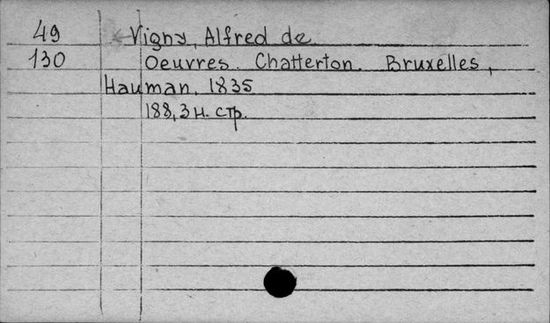 49 Vigny, Alfred de.
130 Oeuvres. Chatterton. Bruxelles,
Hauman, 1835
188, 3 н. стр.